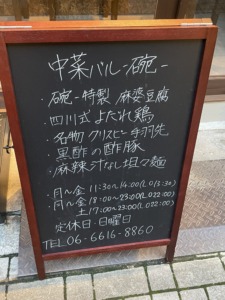 中菜バル-碗-
・碗-特製 麻婆豆腐
・四川式よだれ鶏
・名物 クリスピー手羽先
・黒酢の酢豚
・麻辣汁なし坦々麺
・月~金 11:30~14:00(LO13:30)
・月~金 18:00~23:00(LO22:00)
土 17:00~23:00(LO22:00)
定休日:日曜日
TEL 06-6616-8860